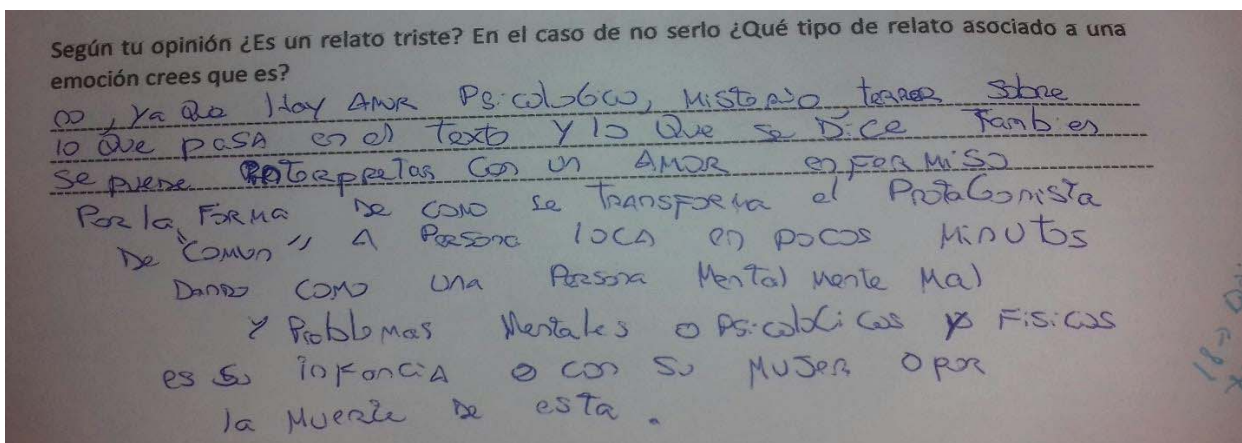 Según tu opinión ¿Es un relato triste? En el caso de no serlo ¿Qué tipo de relato asociado a una
emoción crees que es?
no, Ya Que Hay AMOR PSicoloGico, MISteRio, teRROR Sobre
lo Que pasa en el Texto Y lo Que se Dice Tambien
se puede inteRpRetaR Con un AMOR enFeRMiSo
PoR la FoRMa De como se TRANSFoRMa el PRotaGonista
De "Comun" A PeRSona loca en pocos Minutos
Dando como una PeRsona Mental Mente Mal
Y PRoblemas Mentales o PSicoloGicos y FiSicos
es su inFancia o con su MUJeR o poR
la Muerte De esta.